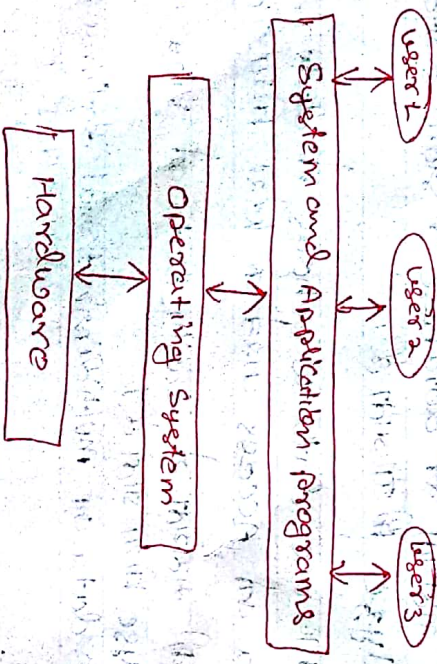 user 1
user 2
user 3
System and Application programs
Operating System
Hardware